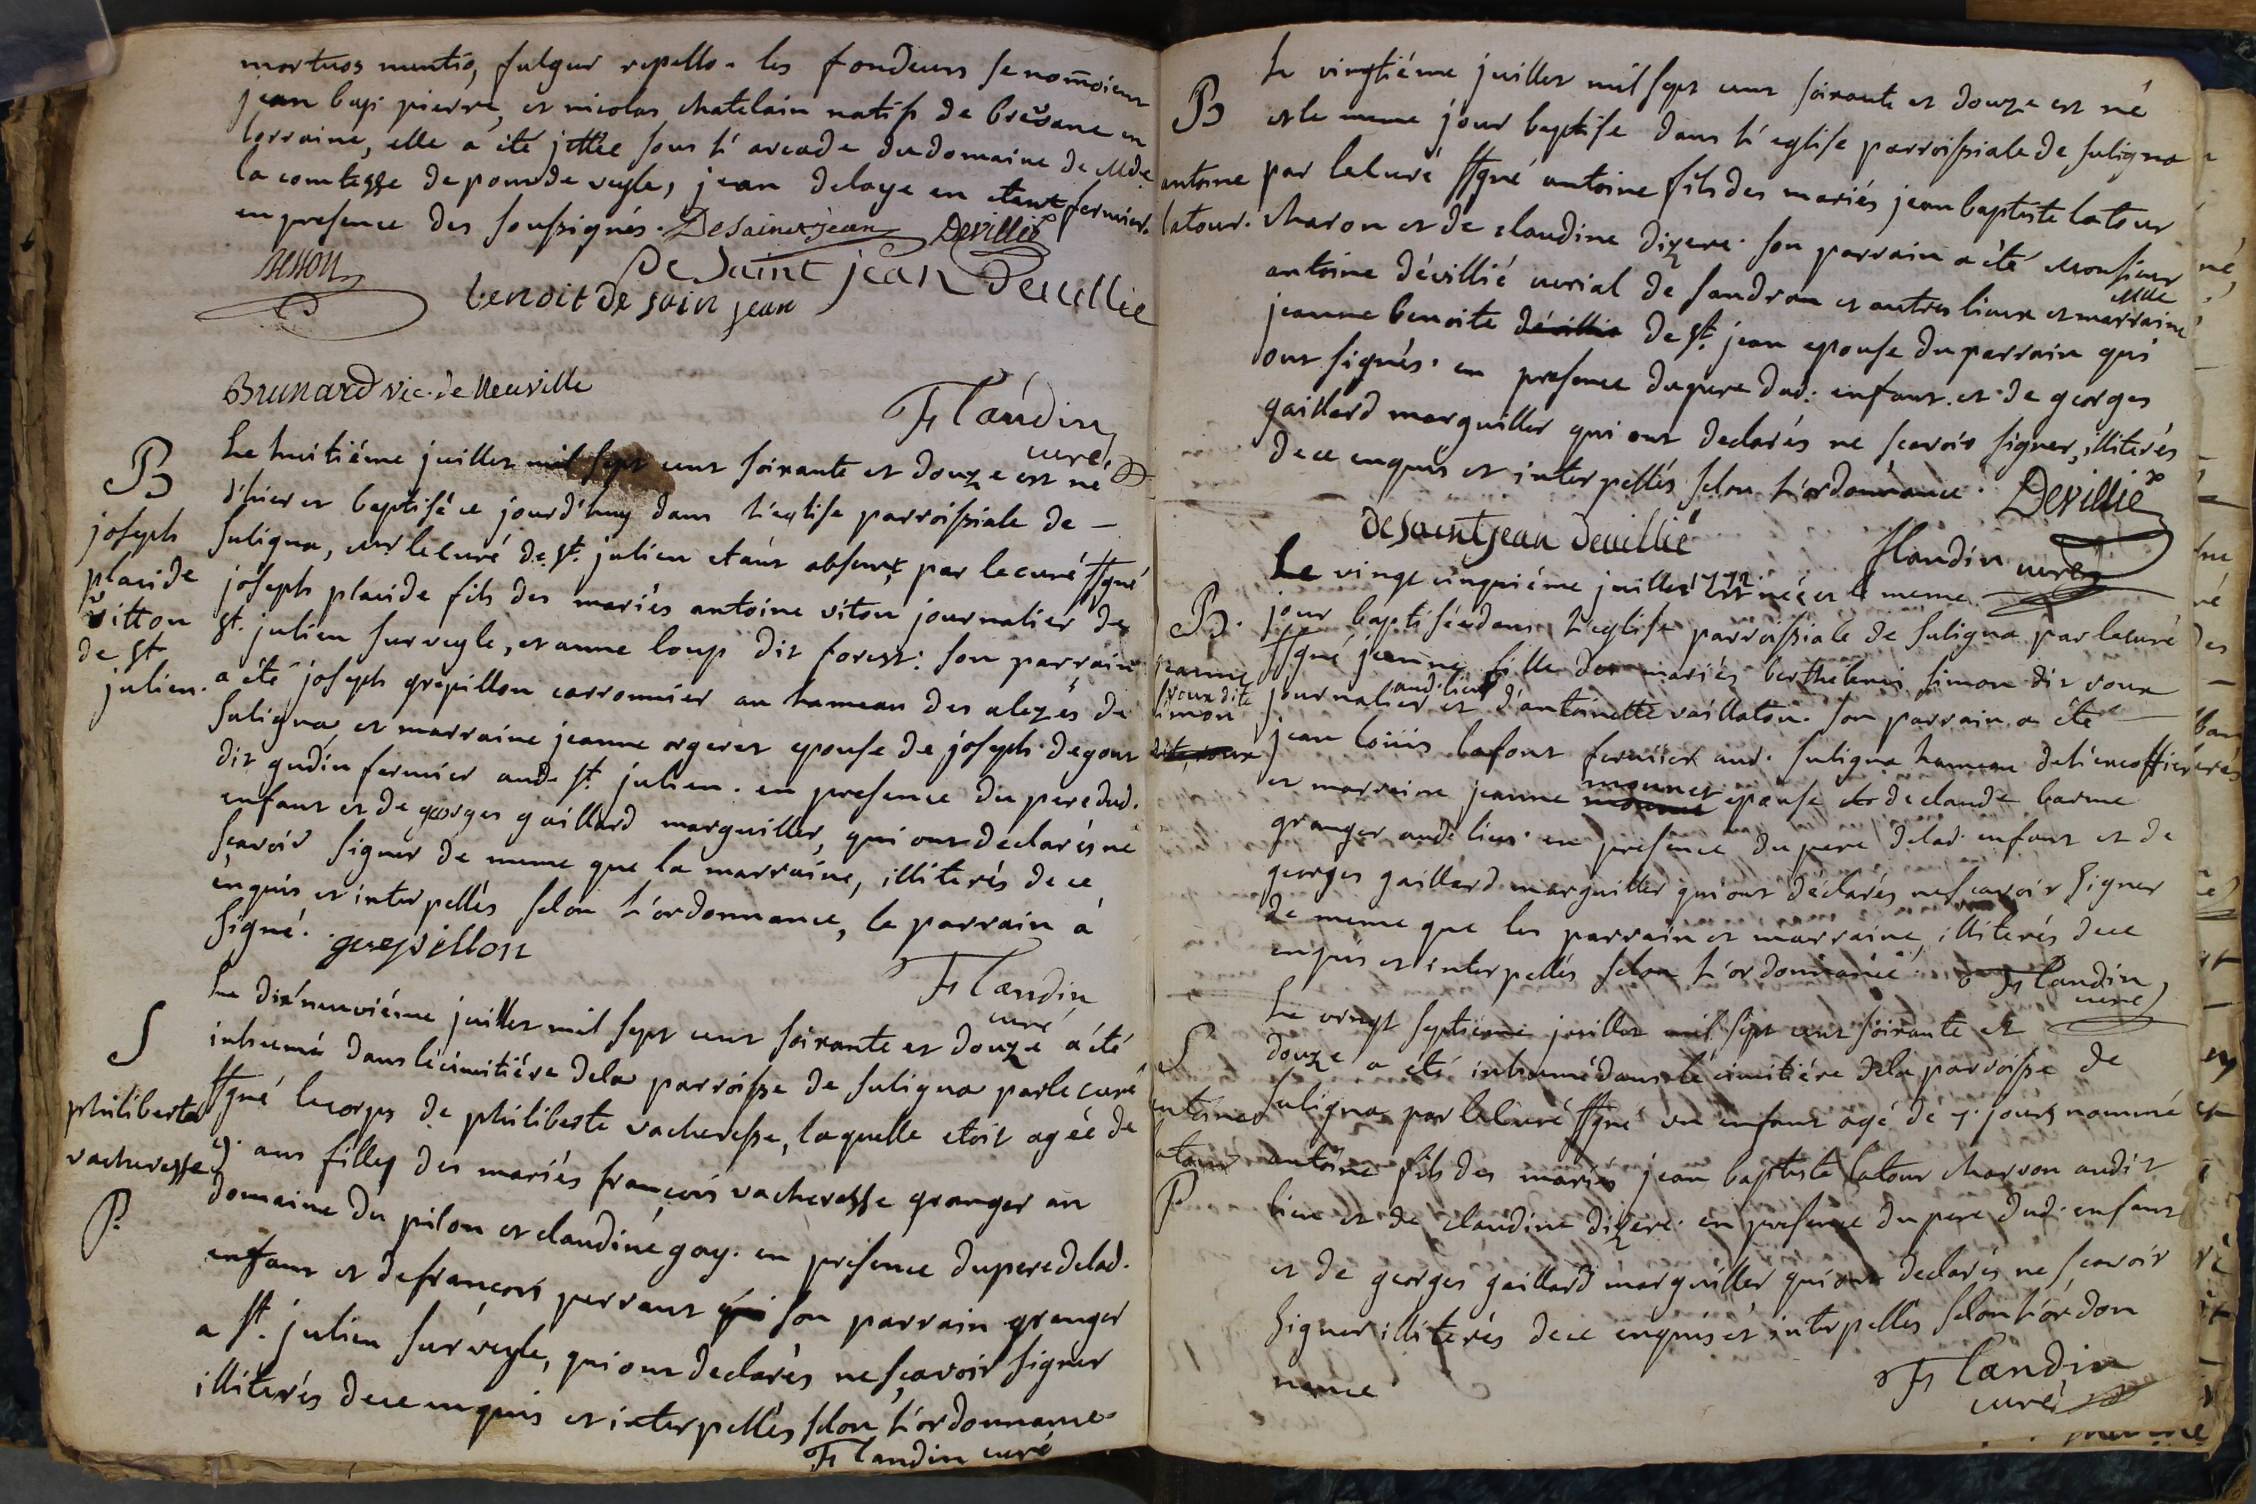 mortuos nuntio, fulgur repello. les fondeurs se nom̄oient
jean bap. pierre, et nicolas chatelain natifs de brevane en
lorraine, elle a été jettée sous l'arcade du domaine de Mde
la comtesse de pontdeveyle, jean delaye en etant fermier.
en presence des soussignés. Desaintjean Devillié
besson De Saint jean Devillié
benoit de sain jean
Brunard vic. de Neuville
Flandin
curé
B
joseph
placide
vitton
de st
julien.
Le huitiéme juillet mil sept cent soixante et douze est né
d'hier et baptisé ce jourd'huy dans l'eglise parroissiale de —
suligna, mr le curé de st. julien etant absent, par le curé ssgné
joseph placide fils des mariés antoine viton journalier de
st. julien sur veyle, et anne loup dit forest: son parrain
a été joseph grepillon carronnier au hameau des alezes de
suligna, et marraine jeanne orgeret epouse de joseph degout
dit gudin fermier aud. st. julien. en presence du pere dud.
enfant et de georges gaillard marguiller, qui ont declarés ne
sçavoir signer de meme que la marraine, illiterés de ce
enquis et interpellés selon l'ordonnance, le parrain a
signé. grepillon
Flandin
curé
S
philiberte
vacheresse
P.
Le dixneuviéme juillet mil sept cent soixante et douze a été
inhumée dans le cimitiére de la parroisse de suligna par le curé
ssgné le corps de philiberte vacheresse, laquelle etoit agée de
9. ans fille des mariés françois vacheresse granger au
domaine du pilon et claudine goy. en presence du pere de lad.
enfant et de françois perraut son parrain granger
a st. julien sur veyle, qui ont declarés ne sçavoir signer
illiterés de ce enquis et interpellés selon l'ordonnance.
Flandin curé
B
antoine
latour.
Le vingtiéme juillet mil sept cent soixante et douze est né
et le meme jour baptisé dans l'eglise parroissiale de suligna
par le curé ssgné antoine fils des mariés jean baptiste latour
charon et de claudine dizere. son parrain a été Monsieur
antoine dévillié curial de sandran et autres lieux et marraine Mde
jeanne benoite dévillié de st. jean epouse du parrain qui
ont signés. en presence du pere dud. enfant. et de georges
gaillard marguiller qui ont declarés ne sçavoir signer, illiterés
de ce enquis et interpellés selon l'ordonnance. Devillié
desaintjean devillié
flandin curé
B.
jeanne
roux dite
simon
dite, roux
Le vingt cinquiéme juillet 1772. est née et le meme
jour baptisée dans l'eglise parroissiale de suligna par le curé
ssgné jeanne fille des mariés berthelemi simon dit roux
journalier aud. lieu et d'antoinette vaillaton. son parrain a été —
jean loüis lafont fermier aud. suligna hameau de
et marraine jeanne mounet epouse de claude barme
granger aud. lieu. en presence du pere de lad. enfant et de
georges gaillard marguiller qui ont déclarés ne sçavoir signer
de meme que les parrain et marraine, illiterés de ce
enquis et interpellés selon l'ordonnance. Flandin
curé
S
antoine
latour
P
Le vingt septiéme juillet mil sept cent soixante et
douze a été inhumé dans le cimitiére de la parroisse de
suligna par le curé ssgné un enfant agé de 7. jours nommé
antoine fils des mariés jean baptiste latour charron audit
lieu et de claudine dizere. en presence du pere dud. enfant
et de georges gaillard marguiller qui ont declarés ne sçavoir
signer illiterés de ce enquis et interpellés selon l'ordon
nance
Flandin
curé